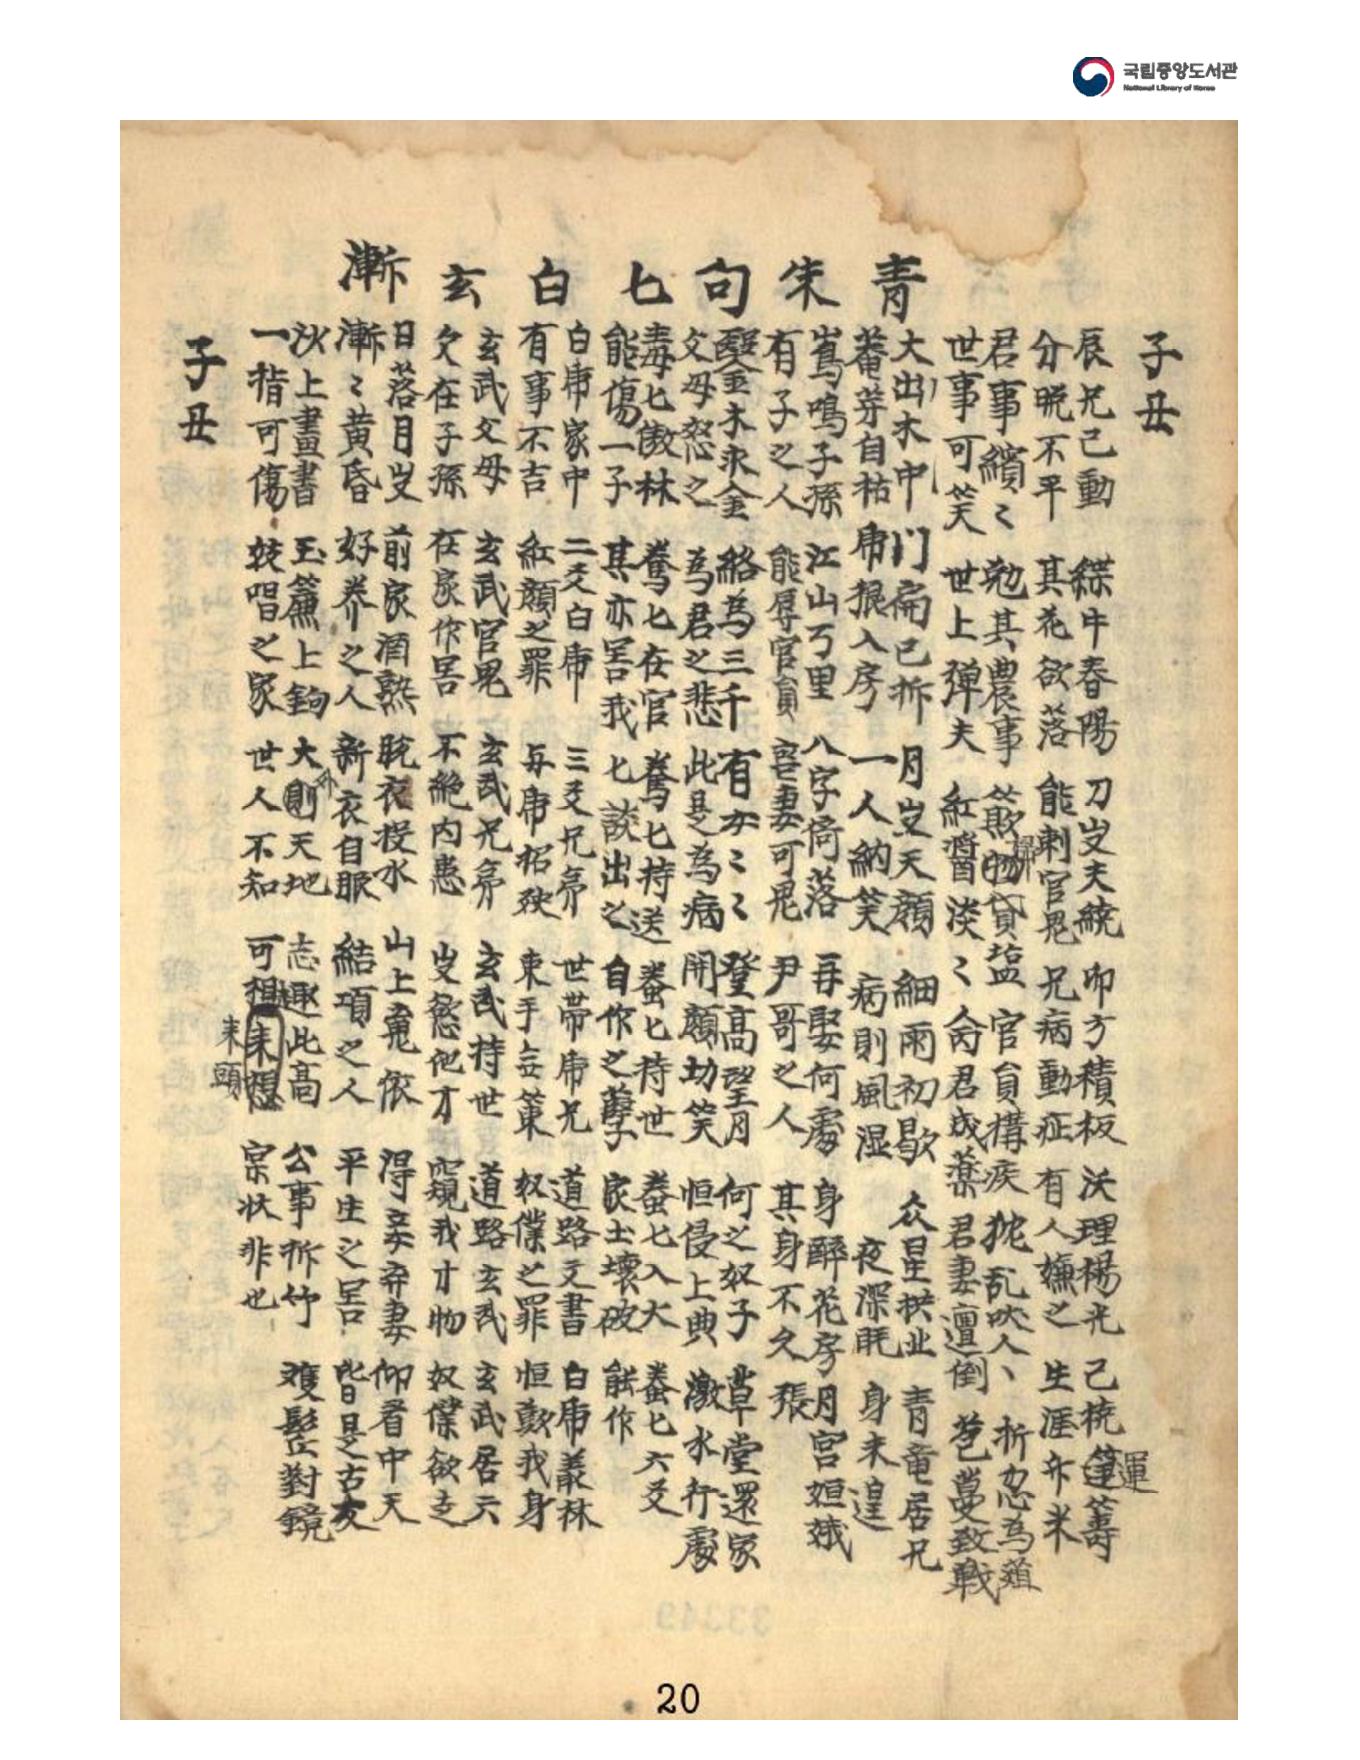 국립중앙도서관
National Library of Korea
子丑
辰兄己動 緤牛春陽 刀岁夫統 卯方積板 沃理楊光 己梳籌運
分晩不平 其花欲落 能刺官鬼 兄病動症 有人嫌之 生涯升米
君事繽〻 勉其農事 欺物貸塩 官員構疾 乱吠人 折忍為
世事可笑 世上彈夫 紅醬淡〻 禽君成薬 君妻亶倒 苞蔓致戰
青
大出木中 门扁已拆 月岁天顔 細雨初歇 众星拱北 青竜居兄
菴芽自枯 庯狼入房 一人納笑 病則風湿 夜深眊 身未遑
朱
鳴子孫 江山丂里 八字倚落 再娶何處 身醉花房 月宮姮娥
有子之人 能辱官員 害妻可鬼 尹哥之人 其身不久 張
句
金木永金 絡為三千 有〻〻 登高望月 何之奴子 草堂還家
父母怒之 為君之悲 此是為病 開顔劫笑 恒侵上典 激水行處
匕
毒匕傲林 鴦匕在官 鴦匕持送 蚕匕持世 蚕匕入大 蚕匕六爻
能傷一子 其亦害我 匕談出之 自作之孽 家土壞破 能作
白
白庯家中 二爻白庯 三爻兄弟 世帯庯兄 道路文書 白庯叢林
有事不吉 紅顔之罪 每庯招殃 束手無策 奴僕之罪 恒歎我身
玄
玄武父母 玄武官鬼 玄武兄弟 玄武持世 道路玄武 玄武居六
欠在子孫 在家作害 不絶内患 岁慾他才 窺我才物 奴僕欲走
漸
日落月岁 前家酒熟 脱衣投水 山上鬼依 得妾弃妻 仰看中天
漸〻黄昏 好养之人 新衣自眼 結項之人 平生之害 皆是古友
沙上畫書 玉簾上鉤 大則天地 志趣此高 公事拆竹 雙髩對鏡
一指可傷 妓唱之家 世人不知 可想来想 宗状非也
来頭
子丑
20